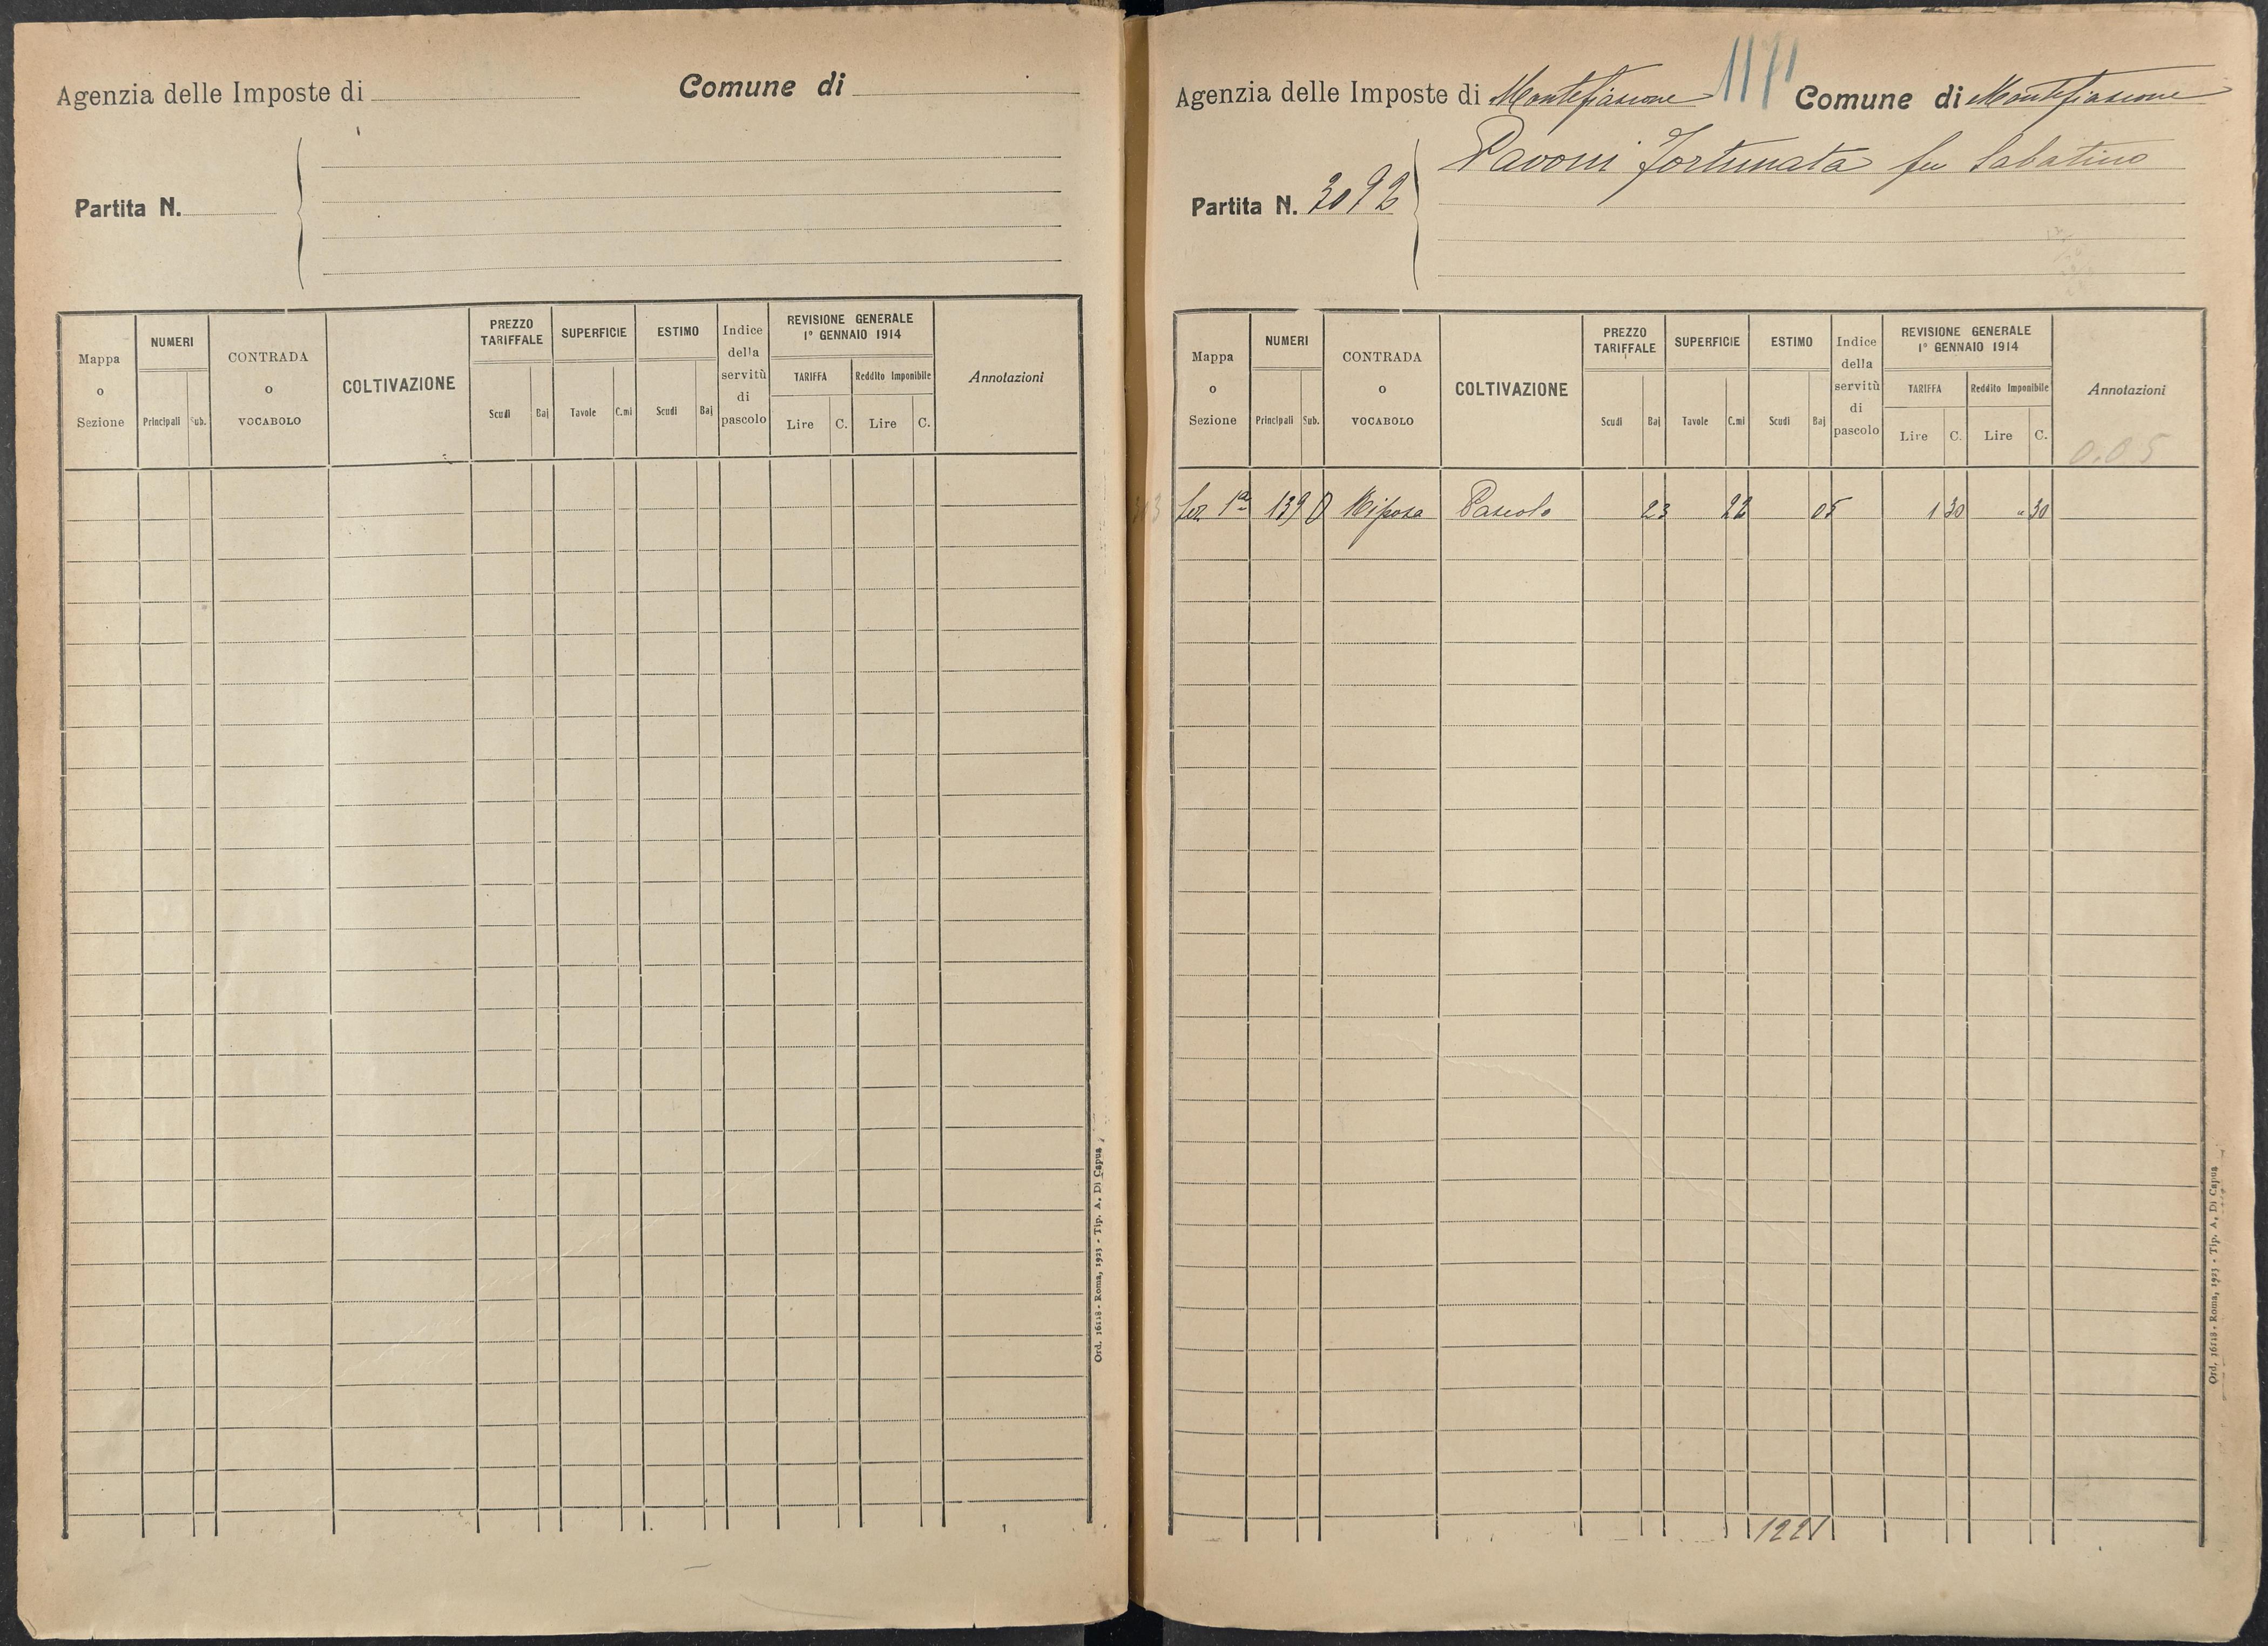 Agenzia delle Imposte di Comune di
Partita N.
Mappa o Sezione NUMERI Principali Sub. CONTRADA o VOCABOLO COLTIVAZIONE PREZZO TARIFFALE Scudi Baj SUPERFICIE Tavole C.mi ESTIMO Scudi Baj Indice della servitù di pascolo REVISIONE GENERALE 1° GENNAIO 1914 TARIFFA Lire C. Reddito Imponibile Lire C. Annotazioni
Ord. 16118 - Roma, 1923 - Tip. A. Di Capua
Agenzia delle Imposte di Montefiascone Comune di Montefiascone
Pavoni Fortunata fu Sabatino
Partita N. 3092
Mappa o Sezione NUMERI Principali Sub. CONTRADA o VOCABOLO COLTIVAZIONE PREZZO TARIFFALE Scudi Baj SUPERFICIE Tavole C.mi ESTIMO Scudi Baj Indice della servitù di pascolo REVISIONE GENERALE 1° GENNAIO 1914 TARIFFA Lire C. Reddito Imponibile Lire C. Annotazioni
0.05
Sez 1a 139 Pascolo 23 22 05 1 30 " 30
1221
Ord. 16118 - Roma, 1923 - Tip. A. Di Capua